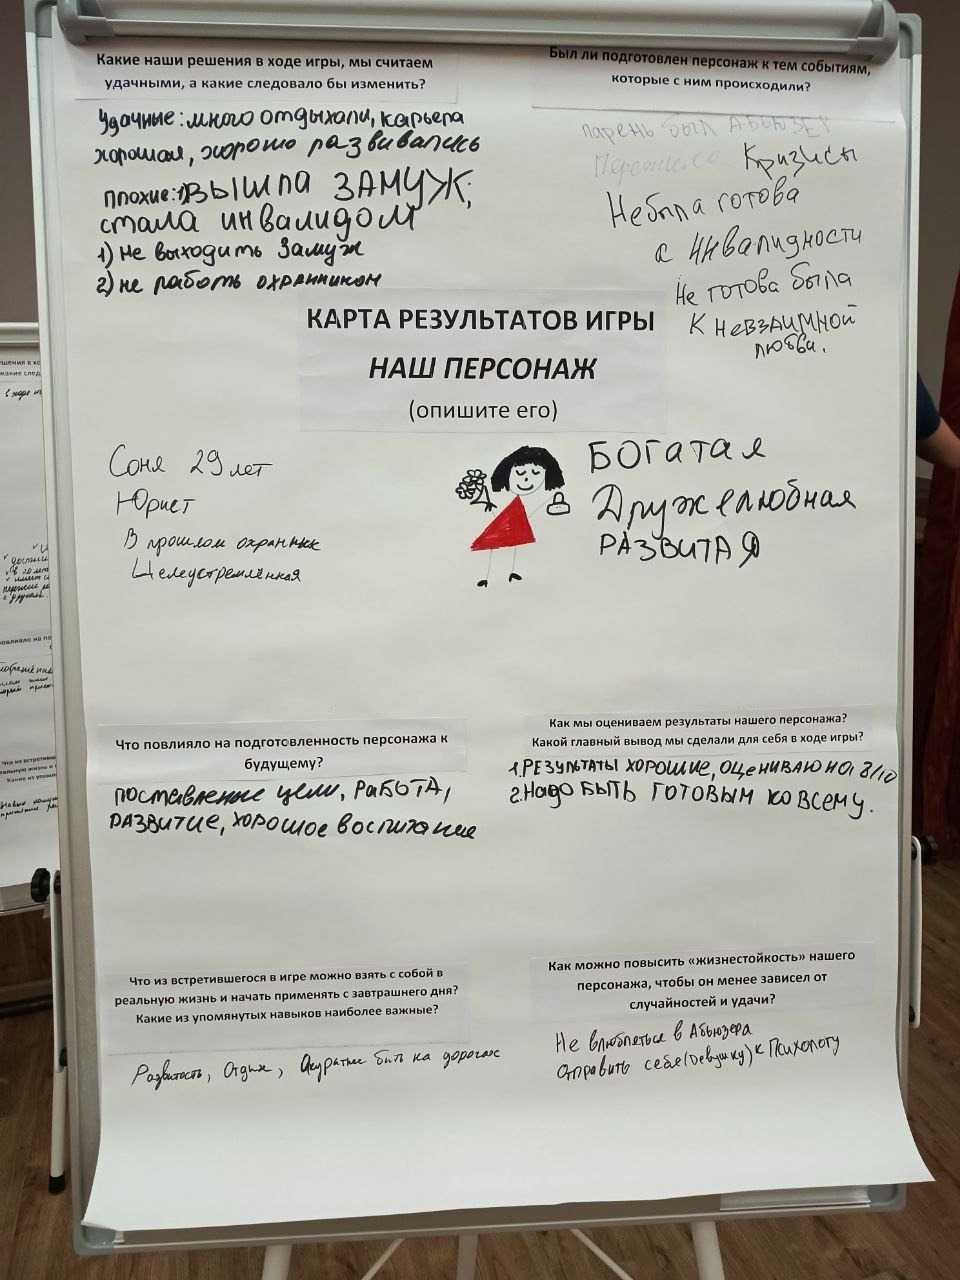 Какие наши решения в ходе игры, мы считаем
удачными, а какие следовало бы изменить?
Удачные: много отдыхали, карьера
хорошая, хорошо развивались
Плохие: ВЫШЛА ЗАМУЖ,
стала инвалидом
1) не выходить замуж
2) не работь охранником
Был ли подготовлен персонаж к тем событиям,
которые с ним происходили?
парень был АБЬЮЗЕР
Пережила Кризисы
Не была готова
к Инвалидности
Не готова была
к НЕВЗАИМНОЙ
любви.
КАРТА РЕЗУЛЬТАТОВ ИГРЫ
НАШ ПЕРСОНАЖ
(опишите его)
Соня 29 лет
Юрист
В прошлом охранник
Целеустремлённая
БОГАТАЯ
Дружелюбная
РАЗВИТАЯ
Что повлияло на подготовленность персонажа к
будущему?
поставленные цели, РАБОТА,
РАЗВИТИЕ, хорошое воспитание
Как мы оцениваем результаты нашего персонажа?
Какой главный вывод мы сделали для себя в ходе игры?
1. РЕЗУЛЬТАТЫ ХОРОШИЕ, оцениваю на 8/10
2. Надо БЫТЬ ГОТОВЫМ ко всему.
Что из встретившегося в игре можно взять с собой в
реальную жизнь и начать применять с завтрашнего дня?
Какие из упомянутых навыков наиболее важные?
Развитость, Отдых, Акуратнее быть на дорогах
Как можно повысить «жизнестойкость» нашего
персонажа, чтобы он менее зависел от
случайностей и удачи?
Не влюбляться в Абьюзера
Отправить себя (девушку) к Психологу